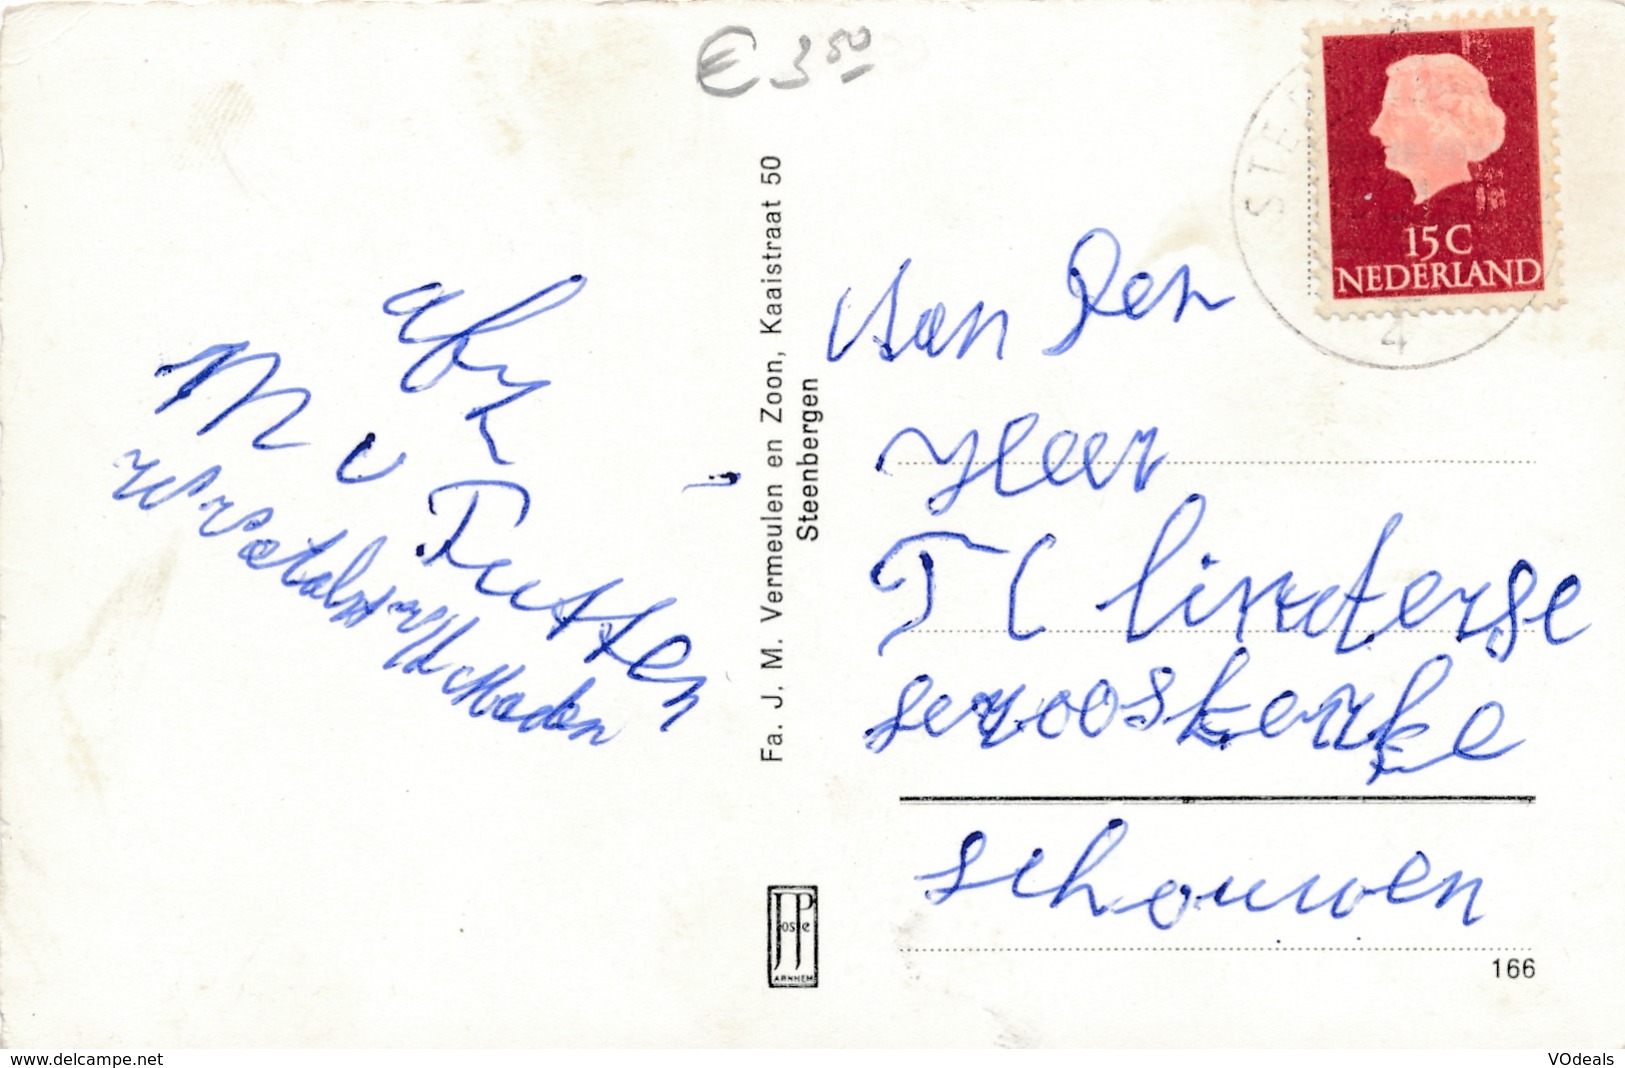 € 3 50
STE
15 C
NEDERLAND
4
afz
M v
Rutten
Fa. J. M. Vermeulen en Zoon, Kaaistraat 50
Steenbergen
Aan den
Heer
T C linderse
serooskerke
schouwen
Poste
ARNHEM
166
www.delcampe.net
VOdeals